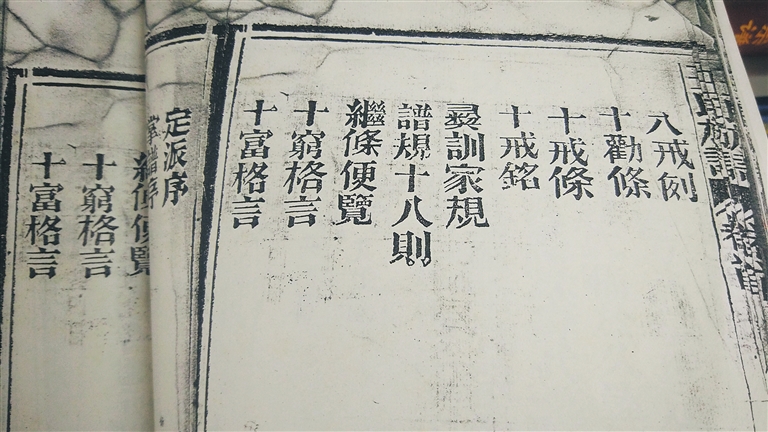 卷首
八戒例
十勸條
十戒條
十戒銘
彛訓家規
譜規十八則
繼條便覽
十窮格言
十富格言
定派序
繼條便覽
十窮格言
十富格言